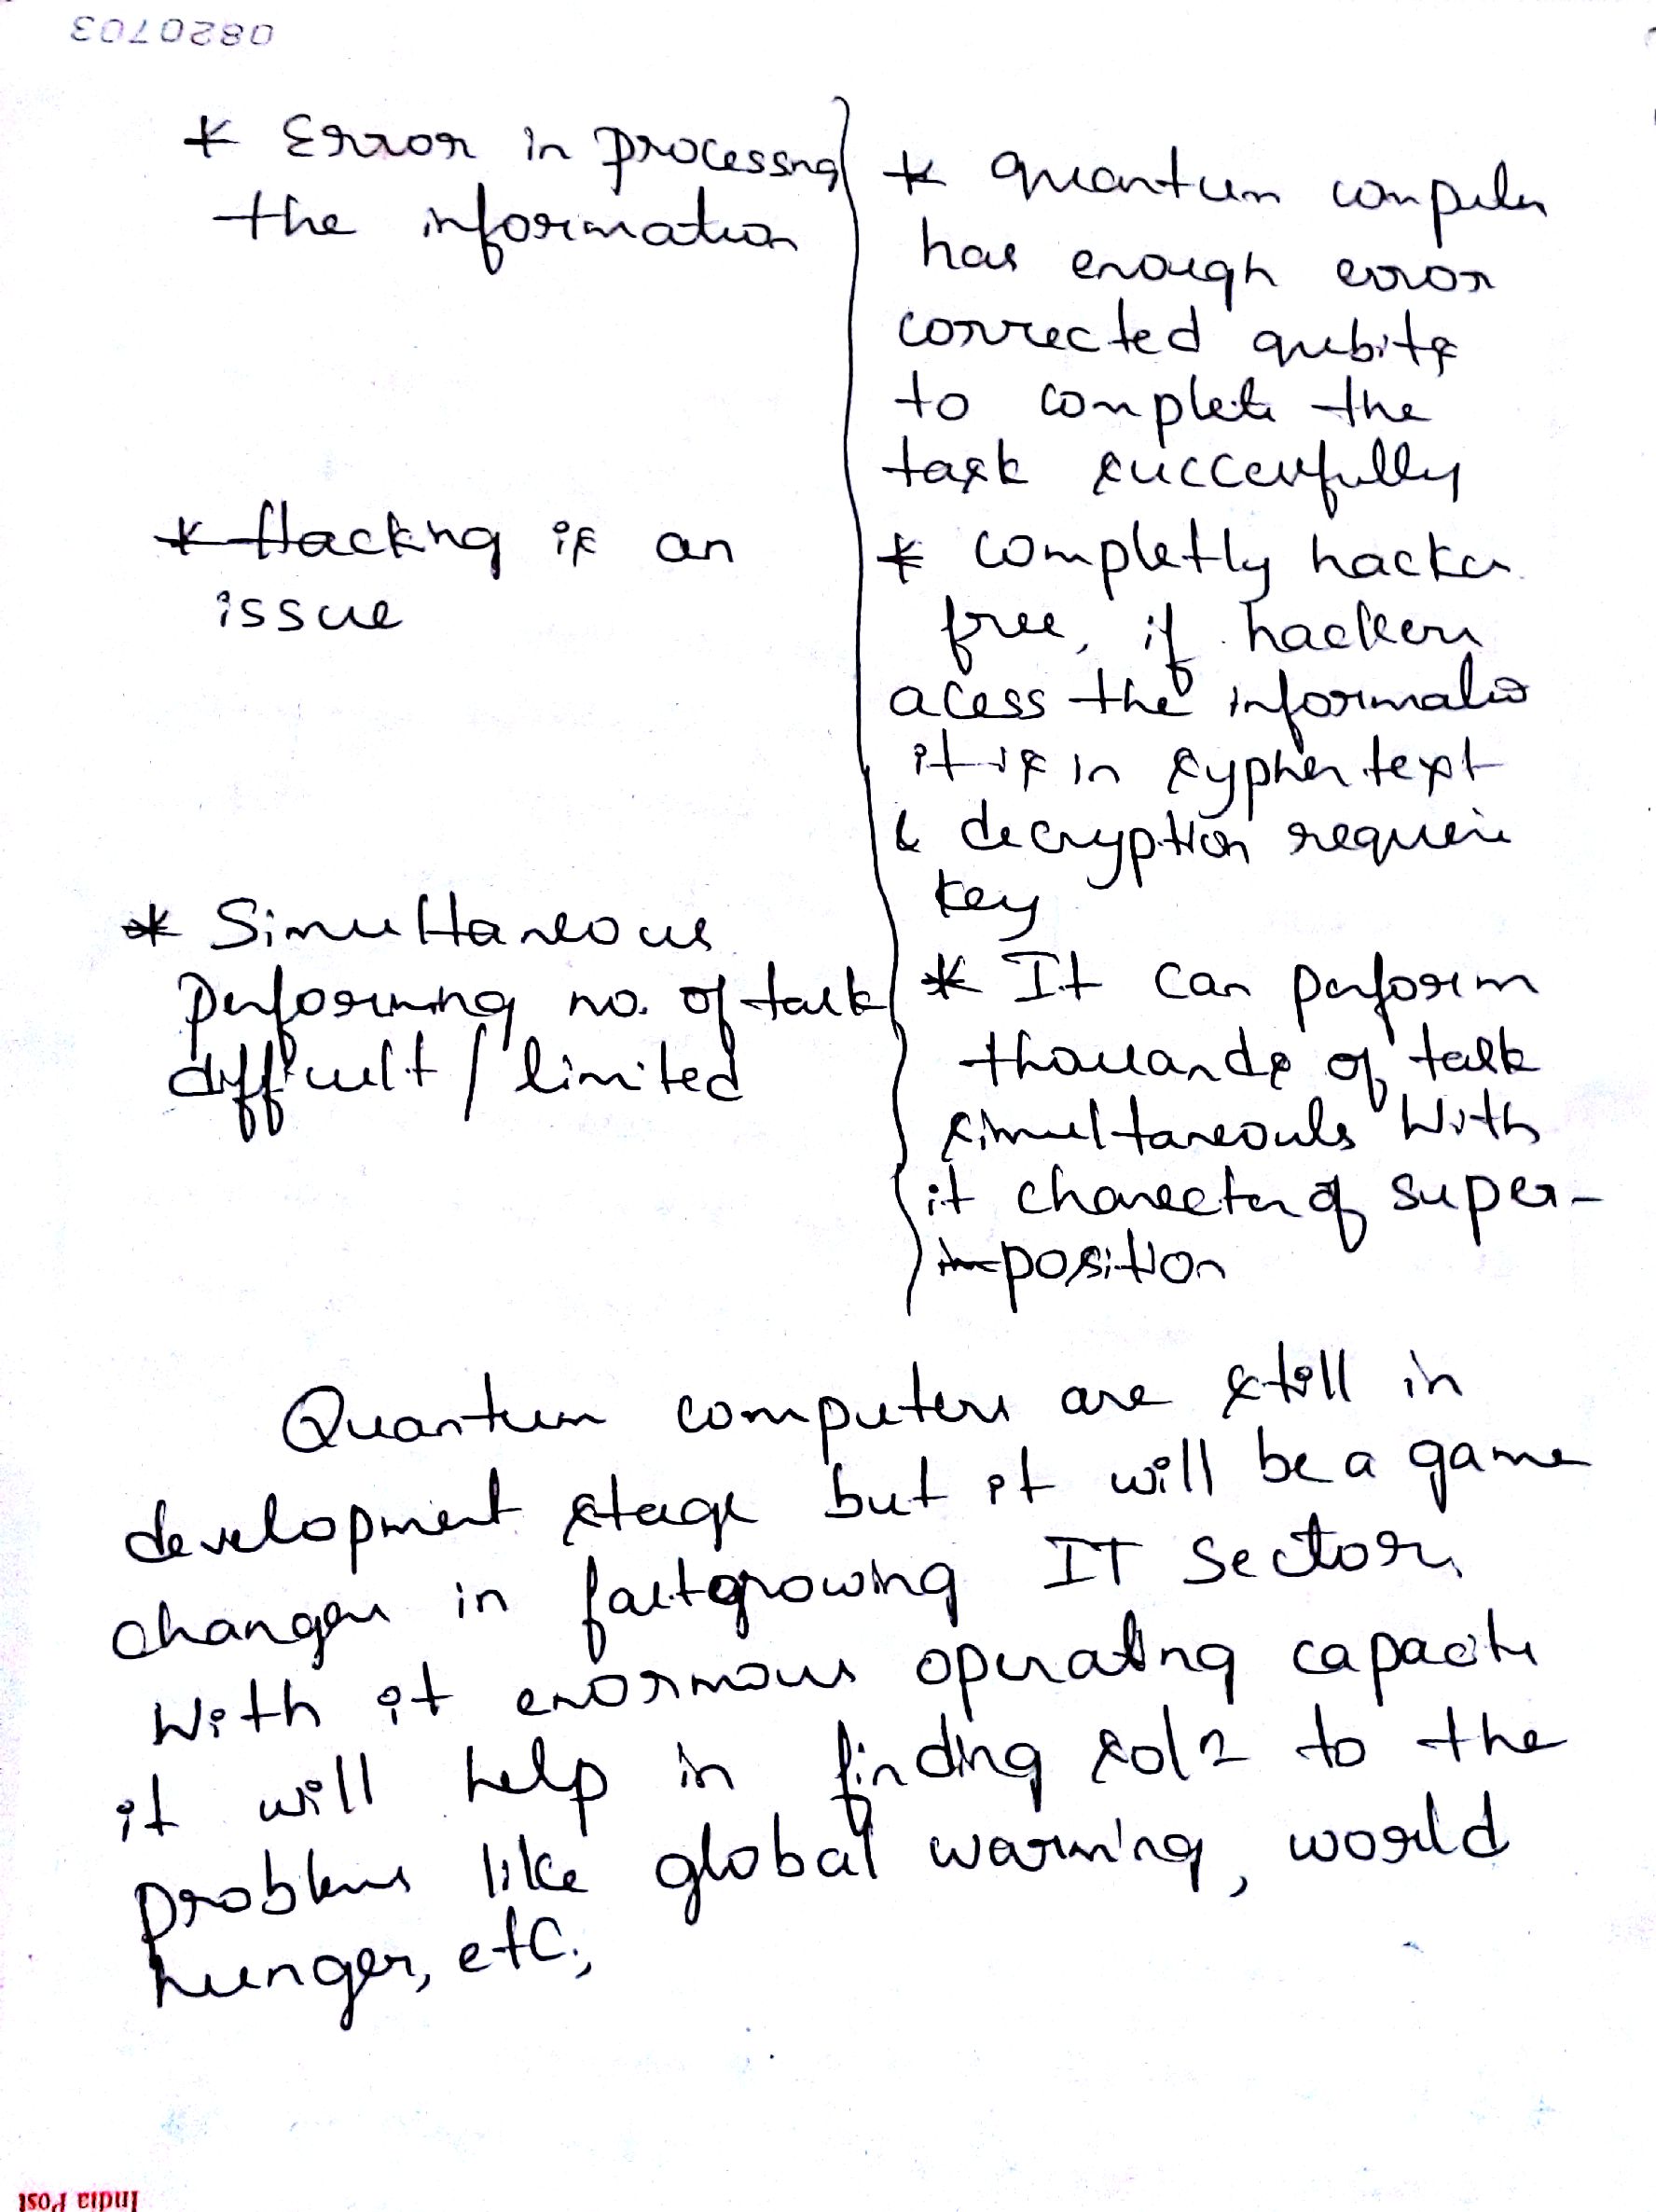 0820703
* Error in processng
the information
* Hackng is an
issue
* Simultaneous
performing no. of task
difficult / limited
* quantum computer
has enough error
corrected qubits
to complete the
task successfully
* completly hacker
free, if hackers
acess the information
it is in sypher text
& decryption require
key
* It can perform
thousands of task
simultaneouls with
it charecter of super-
position
Quantum computers are still in
development stage but it will be a game
changer in fastgrowing IT Sector,
With it enormous operatng capacity
it will help in findng soln to the
problems like global warming, world
hunger, etc.,
India Post